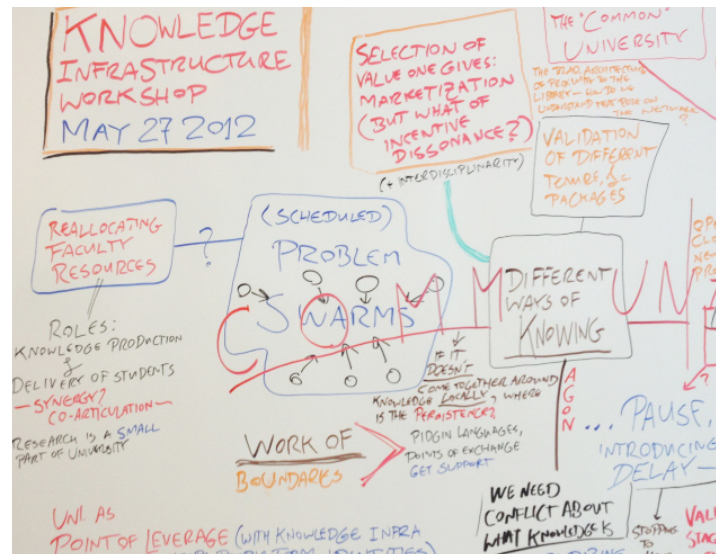 KNOWLEDGE
INFRASTRUCTURE
WORKSHOP
MAY 27 2012
SELECTION OF
VALUE ONE GIVES:
MARKETIZATION
(BUT WHAT OF
INCENTIVE
DISSONANCE?)
(+ INTERDISCIPLINARITY)
THE "COMMON"
UNIVERSITY
THE TRIAD, ARCHITECTURE
OF PROXIMITY TO THE
LIBRARY - HOW TO WE
UNDERSTAND THAT ROLE ON
THE NETWORK?
VALIDATION
OF DIFFERENT
TENURE, &c
PACKAGES
REALLOCATING
FACULTY
RESOURCES
?
(SCHEDULED)
PROBLEM
SWARMS
COMMUN
DIFFERENT
WAYS OF
KNOWING
ROLES:
KNOWLEDGE PRODUCTION
&
DELIVERY OF STUDENTS
— SYNERGY?
CO-ARTICULATION —
RESEARCH IS A SMALL
PART OF UNIVERSITY
IF IT
DOESN'T
COME TOGETHER AROUND
KNOWLEDGE LOCALLY, WHERE
IS THE PERSISTENCE?
WORK OF
BOUNDARIES
PIDGIN LANGUAGES,
POINTS OF EXCHANGE
GET SUPPORT
AGON
?
... PAUSE,
INTRODUCING
DELAY —
WE NEED
CONFLICT ABOUT
WHAT KNOWLEDGE IS
STOPPING
TO
UNI. AS
POINT OF LEVERAGE (WITH KNOWLEDGE INFRA